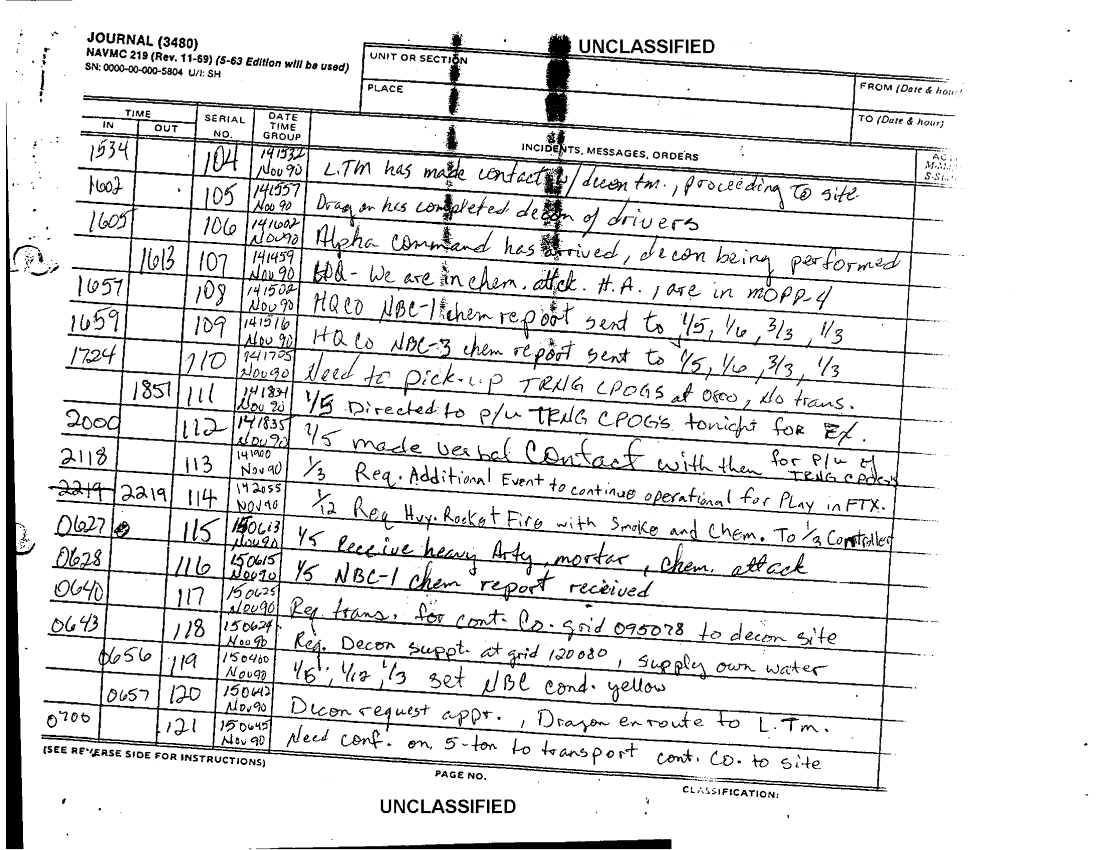 JOURNAL (3480)
NAVMC 219 (Rev. 11-69) (5-63 Edition will be used)
SN: 0000-00-000-5804 U/I: SH
UNCLASSIFIED
UNIT OR SECTION
PLACE
FROM (Date & hour)
TO (Date & hour)
TIME
IN OUT SERIAL NO. DATE TIME GROUP INCIDENTS, MESSAGES, ORDERS
1534 104 141532 Nov 90 L.TM has made contact w/ decon tm., proceeding to site
1602 105 141557 Nov 90 Dragon has completed decon of drivers
1605 106 141602 Nov 90 Alpha command has arrived, decon being performed
1613 107 141459 Nov 90 - We are in chem. attck. H.A., are in MOPP-4
1657 108 141502 Nov 90 HQ CO NBC-1 chem report sent to 1/5, 1/6, 3/3, 1/3
1659 109 141516 Nov 90 HQ Co NBC-3 chem report sent to 1/5, 1/6, 3/3, 1/3
1724 110 141705 Nov 90 Need to pick-up TRNG CPOGS at 0800, No trans.
1851 111 141834 Nov 90 1/5 Directed to p/u TRNG CPOGS tonight for Ex.
2000 112 141835 Nov 90 1/5 made verbal Contact with them for P/u of TRNG CPOGS
2118 113 141900 Nov 90 1/3 Req. Additional Event to continue operational for Play in FTX.
2219 2219 114 142055 Nov 90 1/12 Req Hvy. Rocket Fire with Smoke and Chem. To 1/3 Controller
0627 115 150613 Nov 90 1/5 Receive heavy Arty, mortar, chem. attack
0628 116 150615 Nov 90 1/5 NBC-1 chem report received
0640 117 150625 Nov 90 Req trans. for cont. Co. grid 095078 to decon site
0643 118 150624 Nov 90 Req. Decon suppt. at grid 120080, supply own water
0656 119 150400 Nov 90 1/5, 1/12, 1/3 set NBC cond. yellow
0657 120 150642 Nov 90 Decon request appr., Dragon enroute to L.Tm.
0700 121 150645 Nov 90 Need conf. on 5-ton to transport cont. Co. to site
(SEE REVERSE SIDE FOR INSTRUCTIONS)
PAGE NO.
CLASSIFICATION:
UNCLASSIFIED